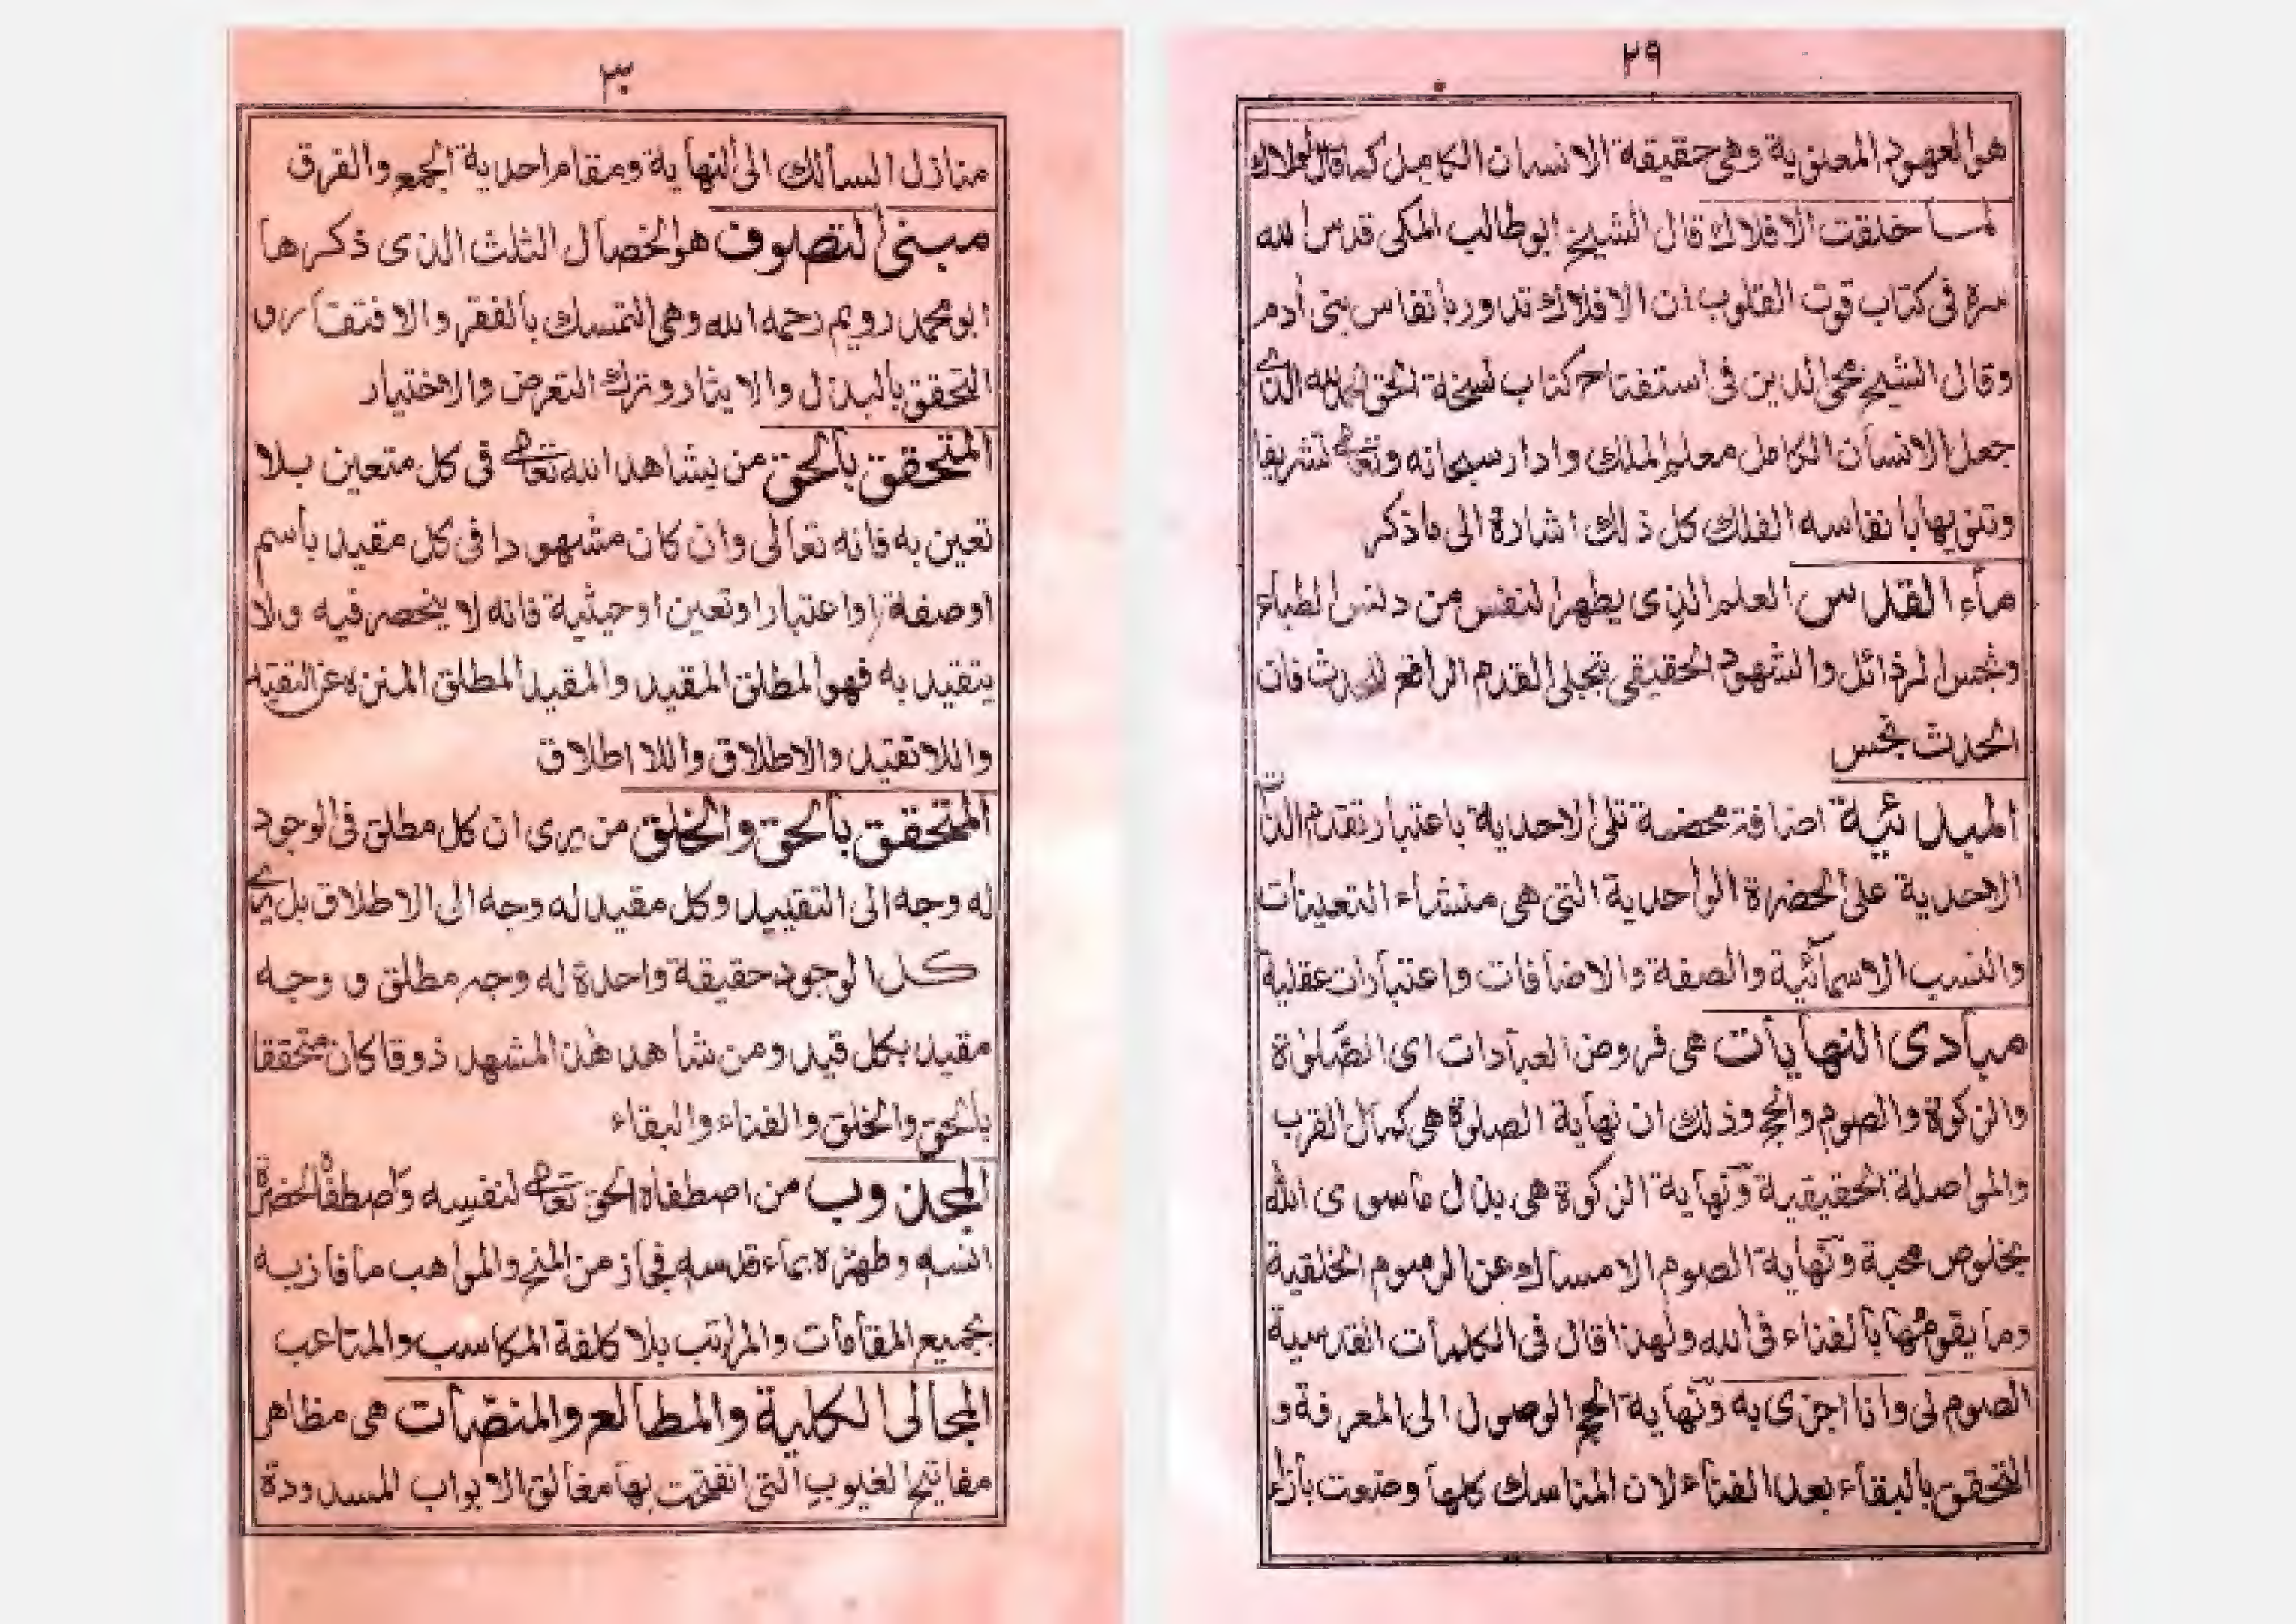 ٢٩
هو العهود المعنوية وهى حقيقة الانسان الكامل كما قال لولاك
لما خلقت الافلاك قال الشيخ ابو طالب المكى قدس الله
سره فى كتاب قوت القلوب ان الافلاك تدور بانفاس بنى أدم
وقال الشيخ محى الدين فى استفتاح كتاب نسخة الحق الحمد لله الذى
جعل الانسان الكامل معلم الملك وادار سبحانه وتعالى تشريفا
وتنويها بانفاسه الفلك كل ذلك اشارة الى ماذكر
ماء القدس العلم الذى يطهر النفس من دنس الطباء
ونجس الرذائل والشهود الحقيقى بتجلى القدم الرافع للحدث فان
الحدث نجس
المبدائية اضافة محضة تلى الاحدية باعتبار تقدم الذات
الاحدية على الحضرة الواحدية التى هى منشاء التعينات
والنسب الاسمائية والصفة والاضافات واعتبارات عقلية
مبادى النهايات هى فروض العبادات اى الصلوة
والزكوة والصوم والحج وذلك ان نهاية الصلوة هى كمال القرب
والمواصلة الحقيقية ونهاية الزكوة هى بذل ماسوى الله
بخلوص محبة ونهاية الصوم الامساك عن الرسوم الخلقية
وما يقومها بالفناء فى الله ولهذا قال فى الكلمات القدسية
الصوم لى وانا اجزى به ونهاية الحج الوصول الى المعرفة و
التحقق بالبقاء بعد الفناء لان المناسك كلها وضعت بازاء
٣٠
منازل السالك الى النهاية ومقام احدية الجمع والفرق
مبنى التصوف هو الخصال الثلث الذى ذكرها
ابو محمد رويم رحمه الله وهى التمسك بالفقر والافتقار و
التحقق بالبذل والايثار وترك التعرض والاختيار
المتحقق بالحق من يشاهد الله تعالى فى كل متعين بلا
تعين به فانه تعالى وان كان مشهودا فى كل مقيد باسم
اوصفة او اعتبار او تعين او حيثية فانه لا ينحصر فيه ولا
يتقيد به فهو المطلق المقيد والمقيد المطلق المنزه عن التقيد
واللا تقيد والاطلاق واللا اطلاق
المتحقق بالحق والخلق من يرى ان كل مطلق فى الوجود
له وجه الى التقييد وكل مقيد له وجه الى الاطلاق بل يرى
كل الوجود حقيقة واحدة له وجه مطلق و وجه
مقيد بكل قيد ومن شاهد هذا المشهد ذوقا كان متحققا
بالحق والخلق والفناء والبقاء
المجذوب من اصطفاه الحق تعالى لنفسه واصطفاه لحضرة
انسه وطهره بماء قدسه فجاز من المنح والمواهب مافاز به
بجميع المقامات والمراتب بلا كلفة المكاسب والمتاعب
المجالى الكلية والمطالع والمنصات هى مظاهر
مفاتيح الغيوب التى انفتحت بها مغالق الابواب المسدودة